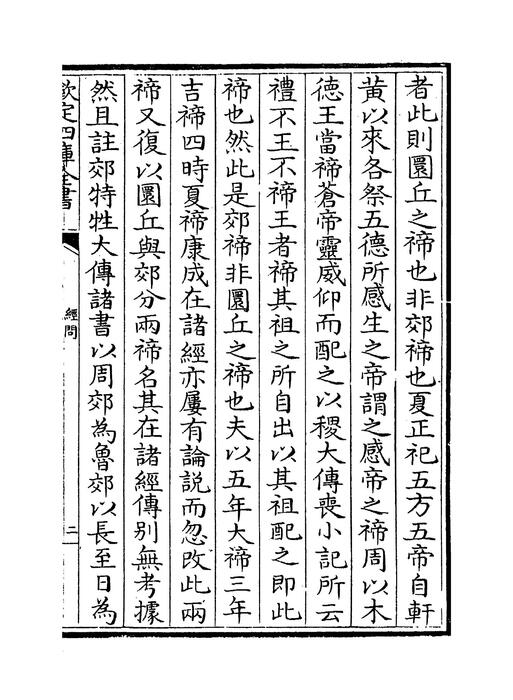 者此則圜丘之禘也非郊禘也夏正祀五方五帝自軒
黄以來各祭五德所感生之帝謂之感帝之禘周以木
德王當禘蒼帝靈威仰而配之以稷大傳喪小記所云
禮不王不禘王者禘其祖之所自出以其祖配之即此
禘也然此是郊禘非圜丘之禘也夫以五年大禘三年
吉禘四時夏禘康成在諸經亦屢有論説而忽改此兩
禘又復以圜丘與郊分兩禘名其在諸經傳别無考據
然且註郊特牲大傳諸書以周郊為魯郊以長至日為
欽定四庫全書
經問
二